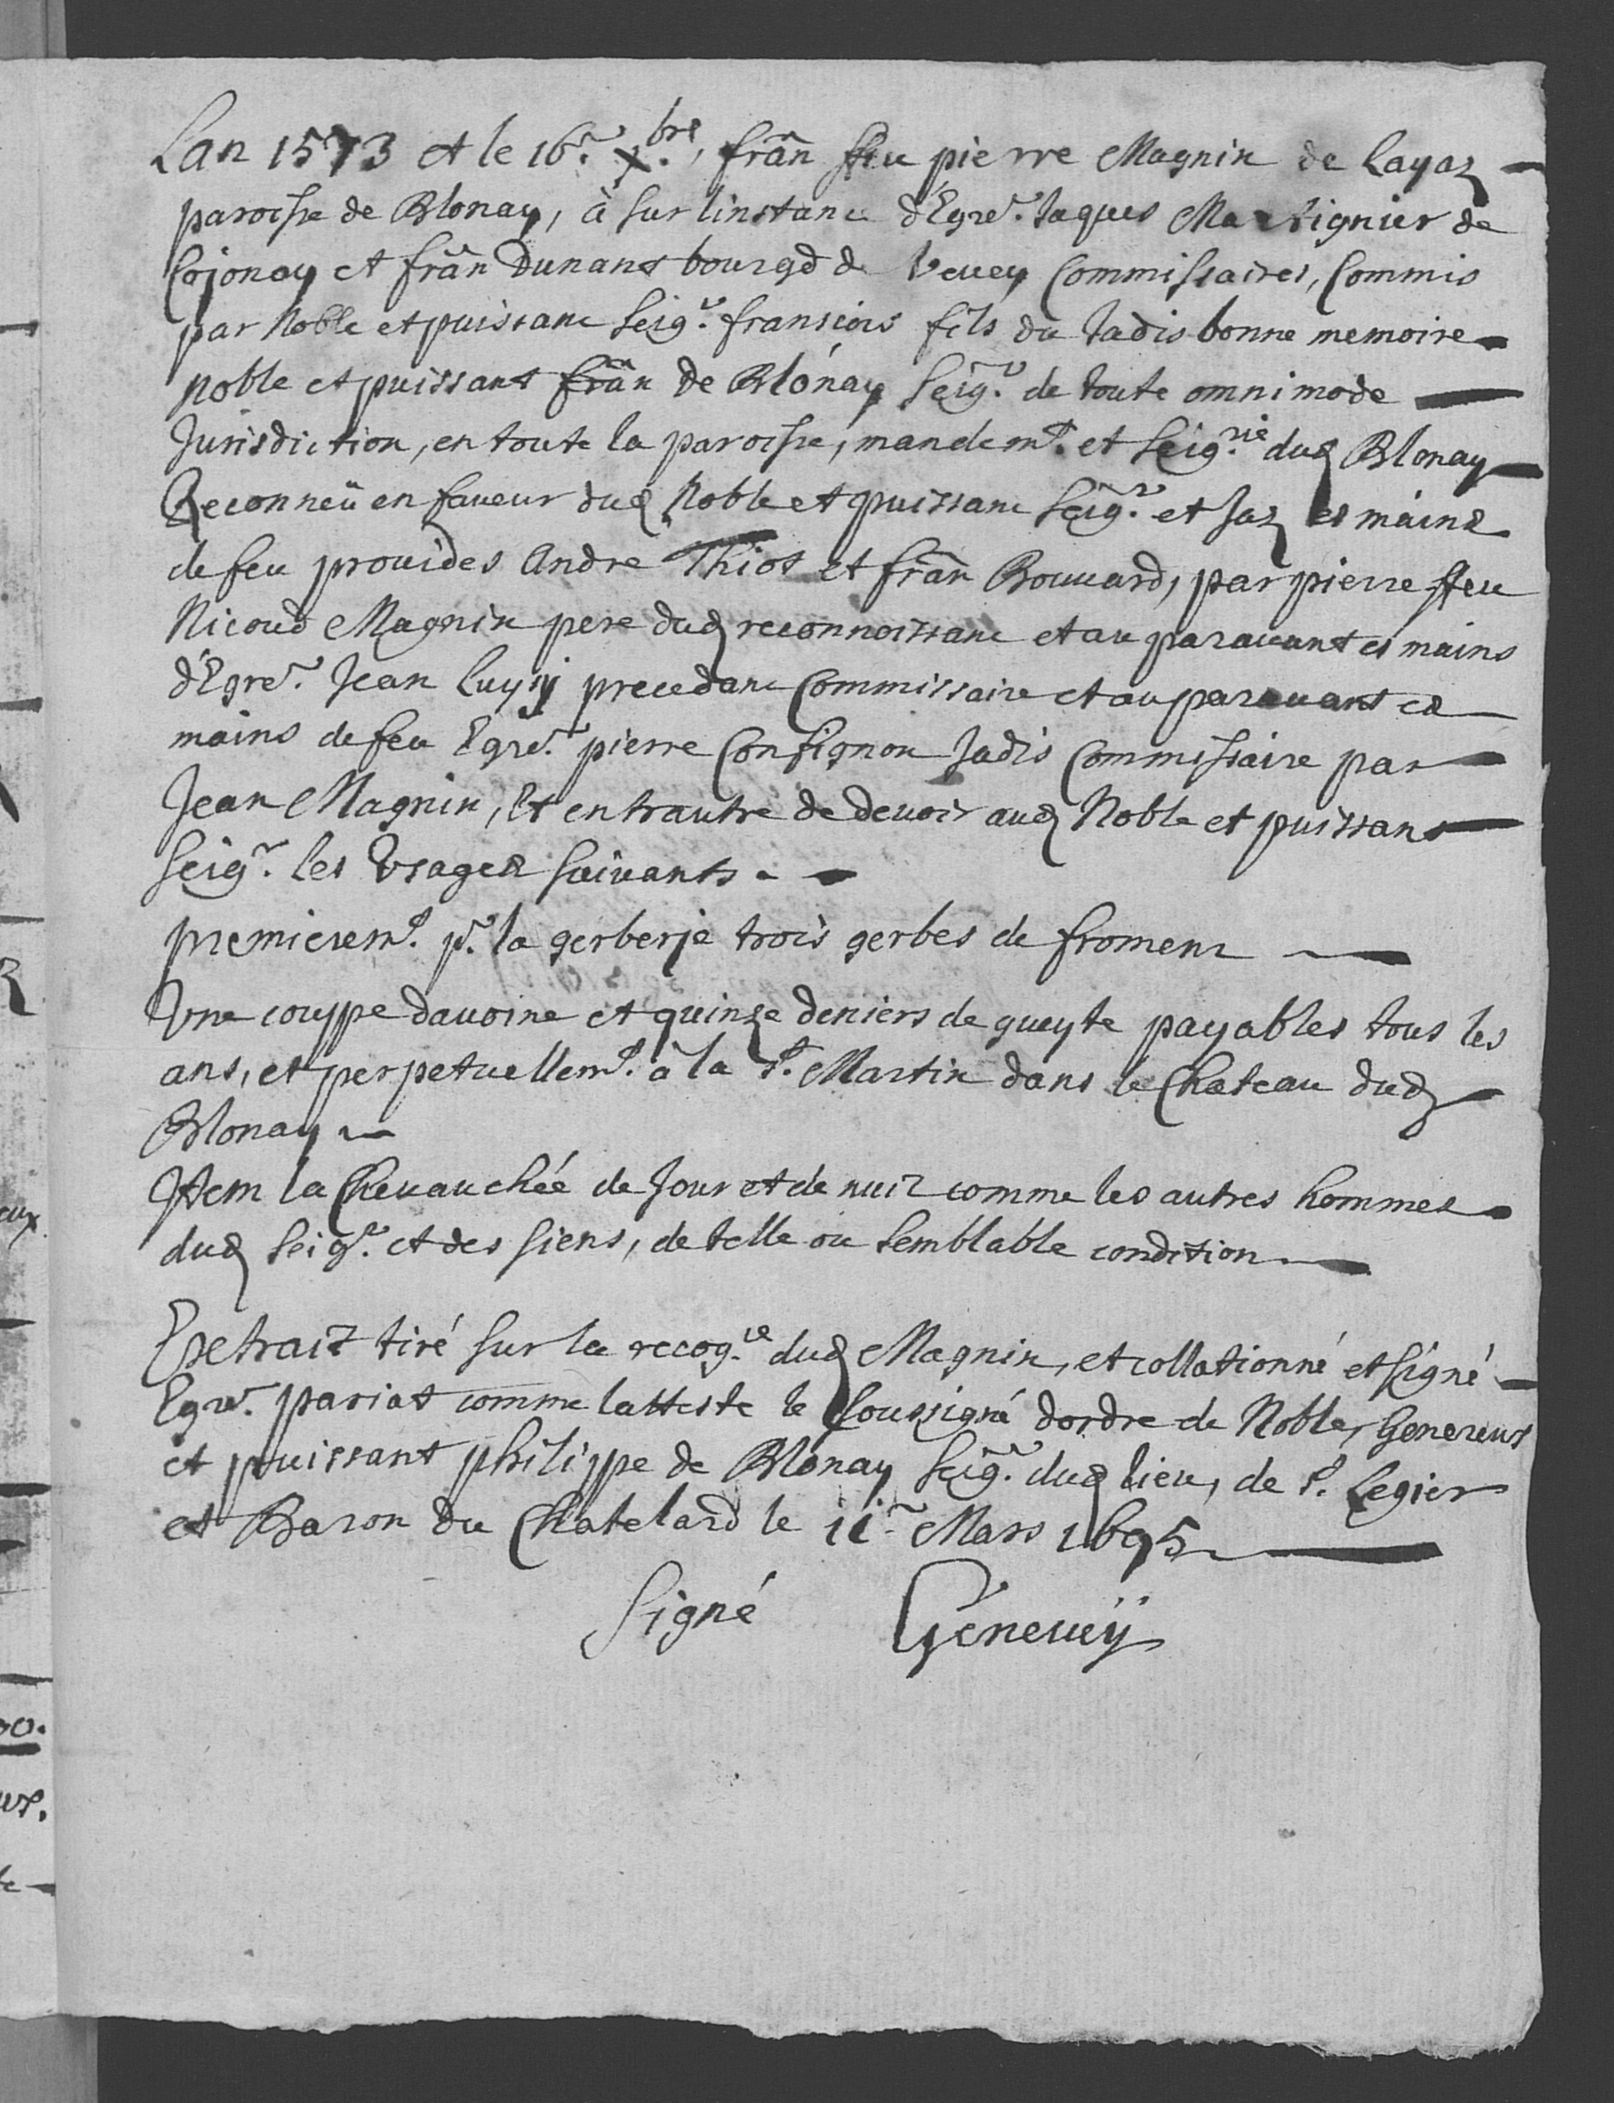 Lan 1573 et le 16.e Xbre, frãn ffeu pierre Magnin de Layaz
paroisse de Blonay, à sur linstance d'Egre. Jaques Martignier de
Cojonay et frãn Dunant bourgd de Vevey Commissaires, Commis
par Noble et puissant Seigr. fransiois fils du Jadis bonne memoire
noble et puissant frãn de Blonay Seigr. de toute omnimode
Jurisdiction, en toute la paroisse, mandemt. et Seigrie. dud Blonay
Reconneü en faveur dud Noble et puissant Seigr. et Jaz es mains
de feu prouides Andre Thiot et frãn Bouuard, par pierre ffeu
Nicoud Magnin pere dud reconnoissant et au parauant es mains
d'Egre. Jean Luyij precedant Commissaire et auparauant es
mains de feu Egre. pierre Confignon Jadis Commissaire par
Jean Magnin, Et entrautre de devoir aud Noble et puissant
Seigr. les Vsages suivants
premieremt. pr. la gerberje trois gerbes de froment
Vne couppe davoine et quinze deniers de gueyte payables tous les
ans, et perpetuellemt. à la St. Martin dans le Chateau dud
Blonay
Item la Chevauchée de Jour et de nuit comme les autres hommes
dud Seigr. et des siens, de telle ou semblable condition
Extrait tiré sur la recogce. dud Magnin, et collationné et signé
Egre. pariat comme latteste le Soussigné dordre de Noble, Genereux
et puissant philippe de Blonay Seigr. dud lieu, de St. Legier
et Baron du Chatelard le 11e Mars 1695
Signé Genevëÿ